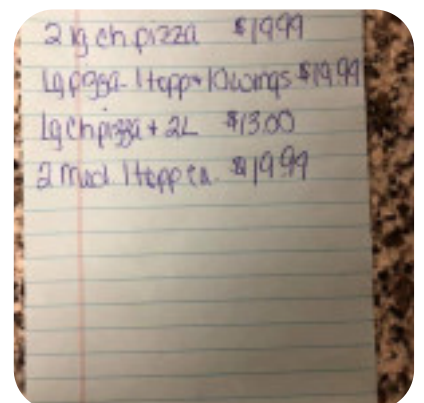 2 lg ch pizza $19.99
Lg pizza - 1 topp + 10 wings $19.99
Lg Ch pizza + 2L $13.00
2 med. 1 topp ea. $19.99